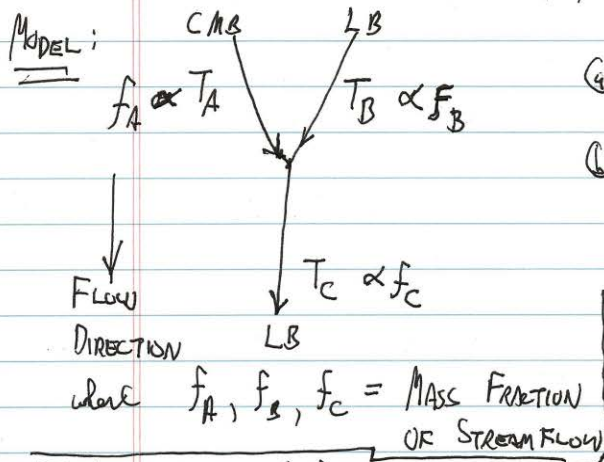 MODEL:
CMB LB
f_A ∝ T_A T_B ∝ f_B
(a)
(b)
T_C ∝ f_C
FLOW
DIRECTION
LB
where f_A, f_B, f_C = MASS FRACTION
OF STREAMFLOW